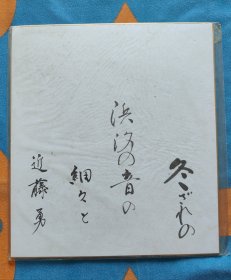 冬ざれの
浜沼の音の
細々と
近藤勇